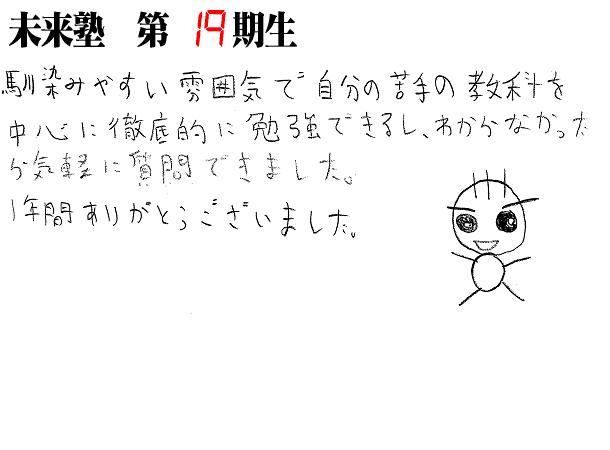 未来塾 第 19 期生
馴染みやすい雰囲気で自分の苦手の教科を
中心に徹底的に勉強できるし、わからなかった
ら気軽に質問できました。
1年間ありがとうございました。